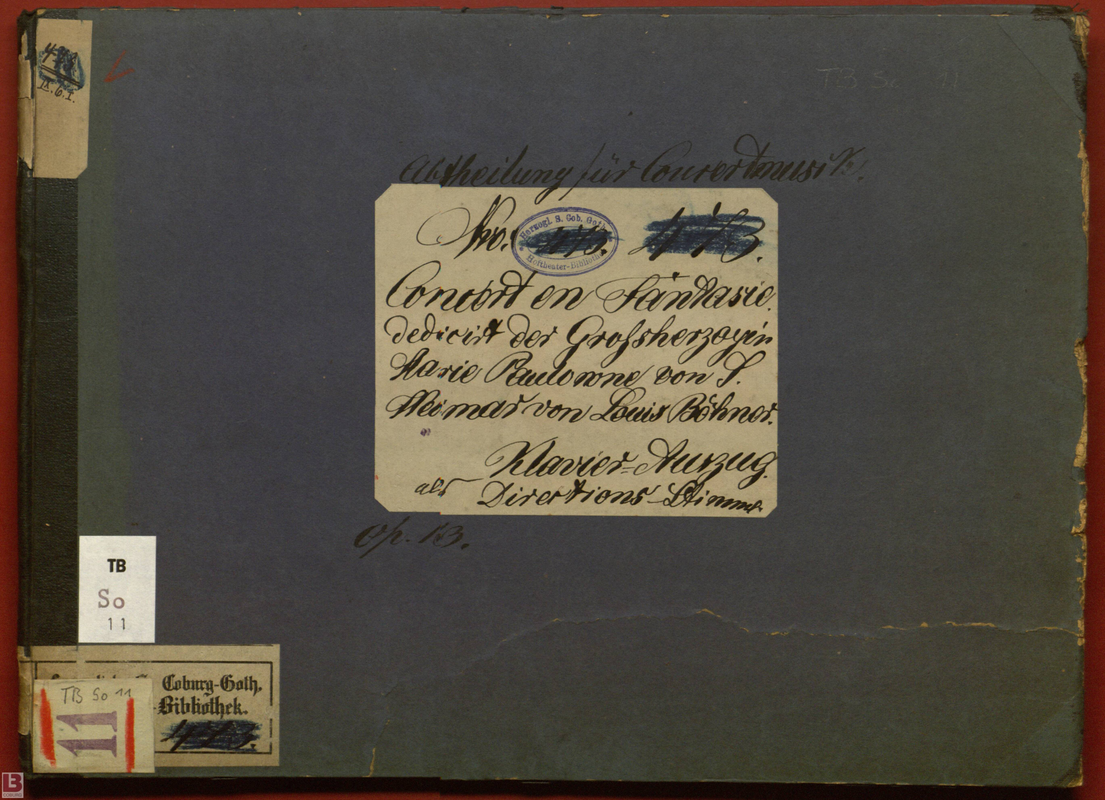 IX.6.I.
TB So 11
Abtheilung für Concertmusik.
No. 473. 473.
Herzogl. S. Cob. Goth.
Hoftheater-Bibliothek
Concert en Fantasie.
dedicirt der Großherzogin
Marie Paulowne von S.
Weimar von Louis Böhner.
Klavier=Auszug.
als Directions-Stimme
Op. 13.
TB
So
11
Coburg-Goth.
-Bibliothek.
TB So 11
11